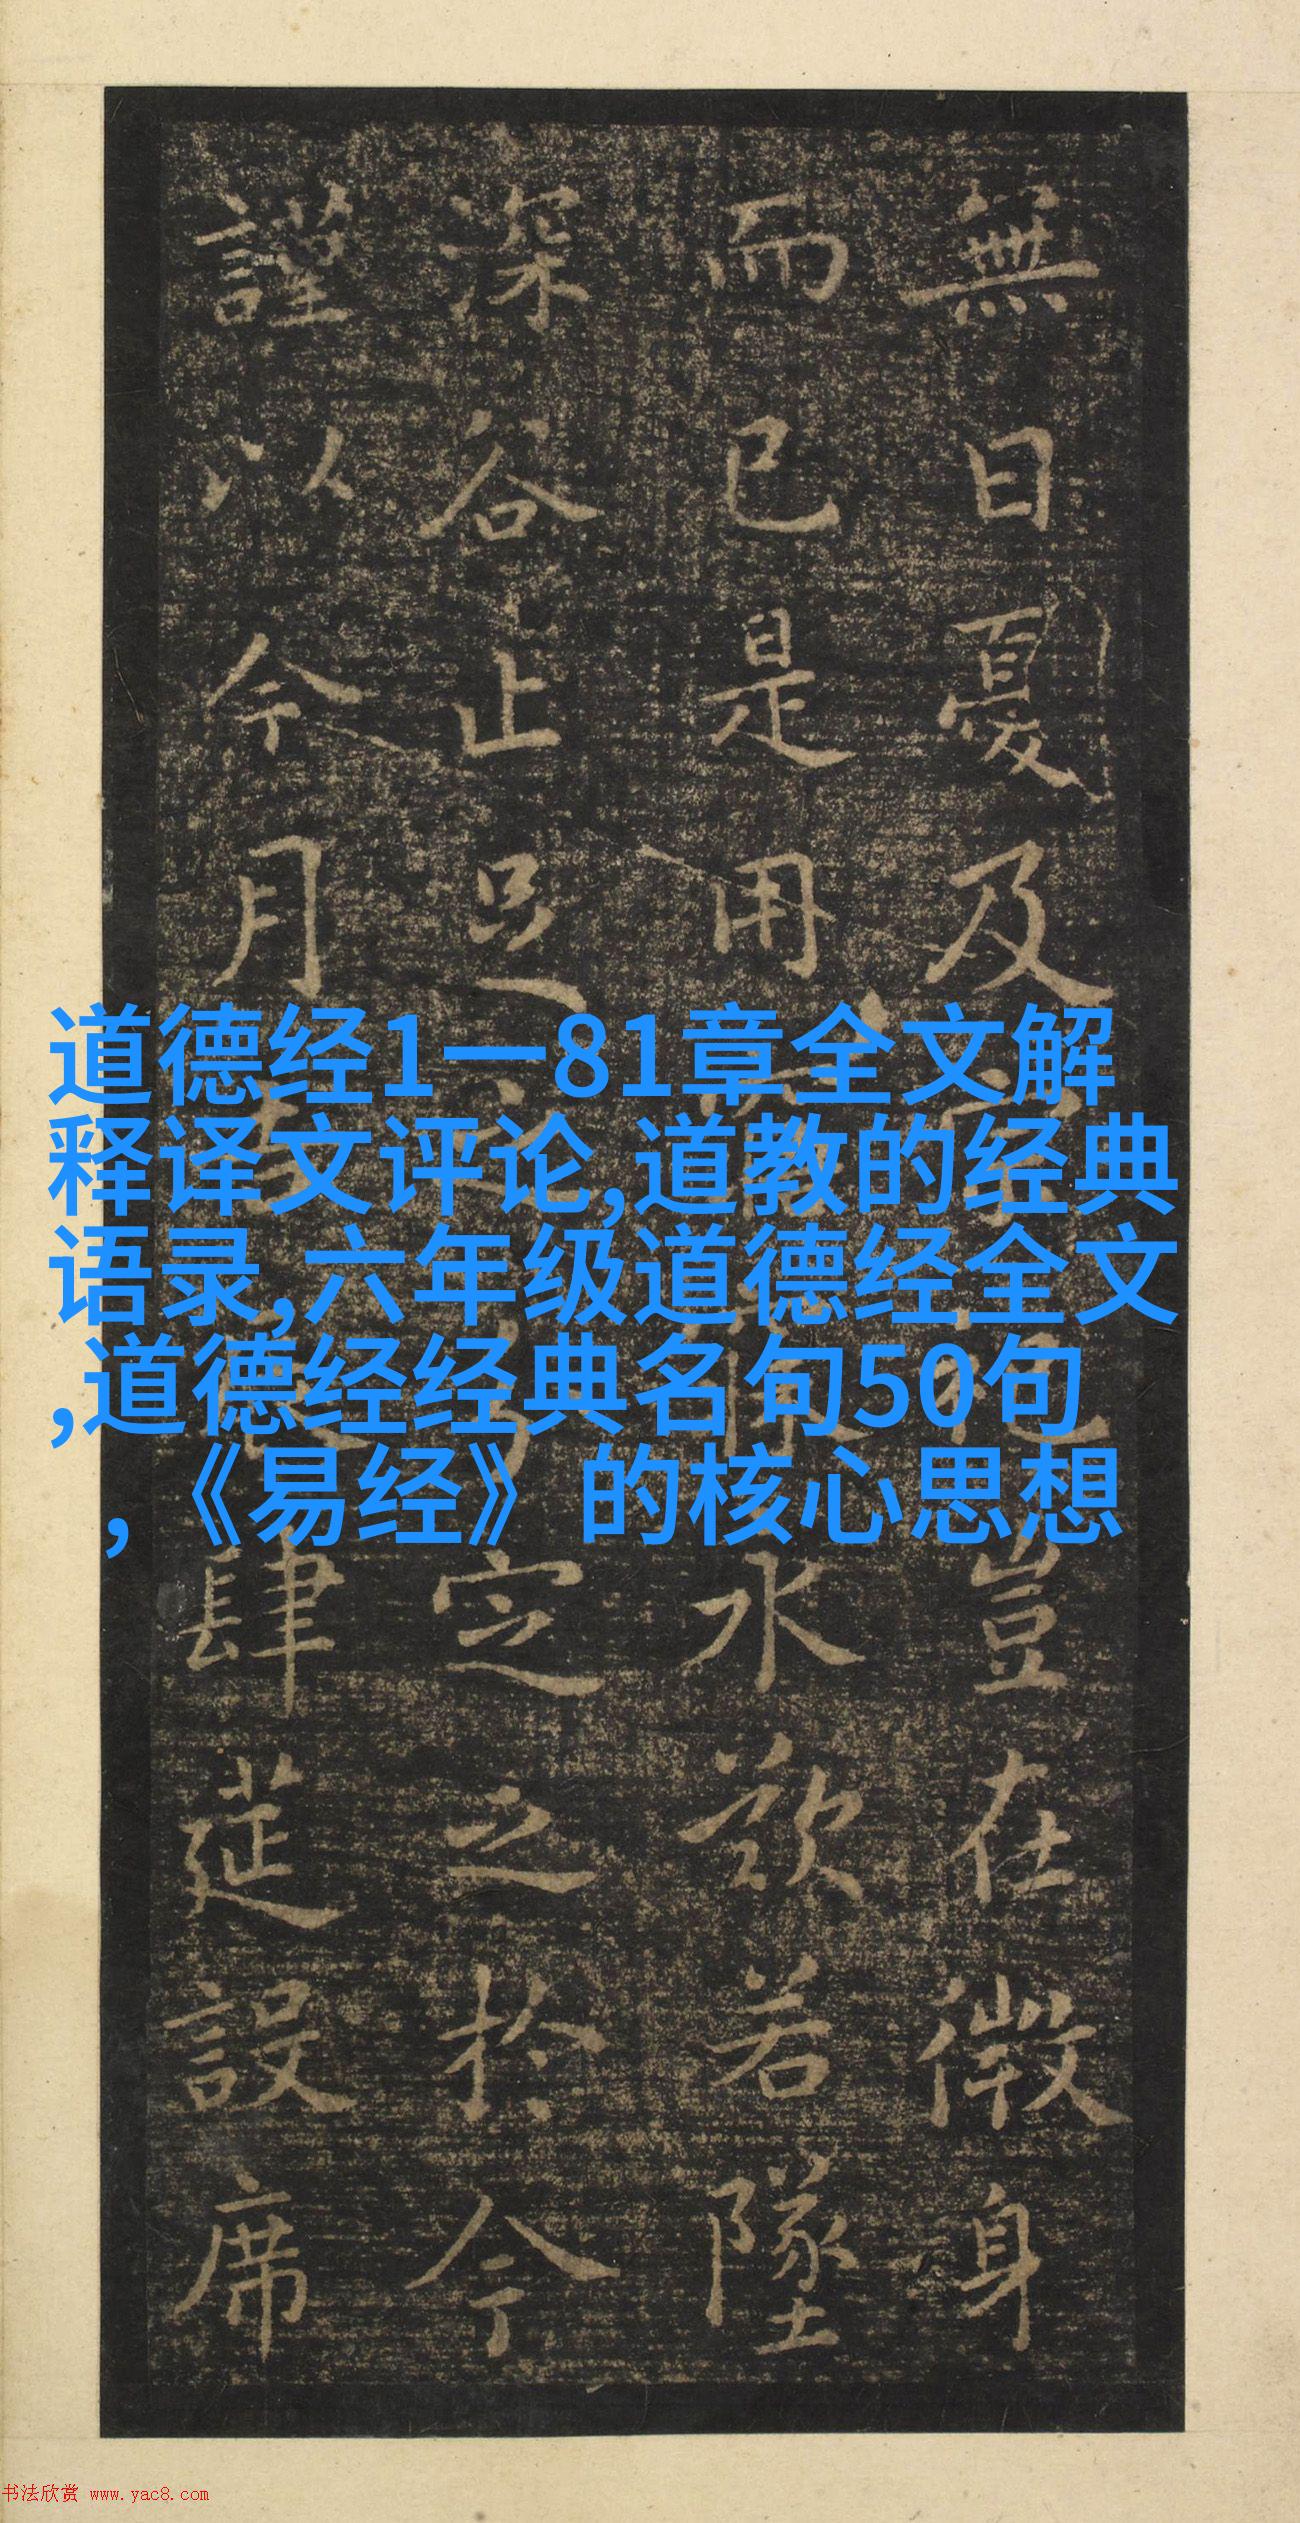 無日憂及豈在微身
而已是用永歎若墜
深谷止足定之於今
謹以今月肆筵設席
道德经1一81章全文解
释译文评论,道教的经典
语录,六年级道德经全文
,道德经经典名句50句
,《易经》的核心思想
书法欣赏 www.yac8.com